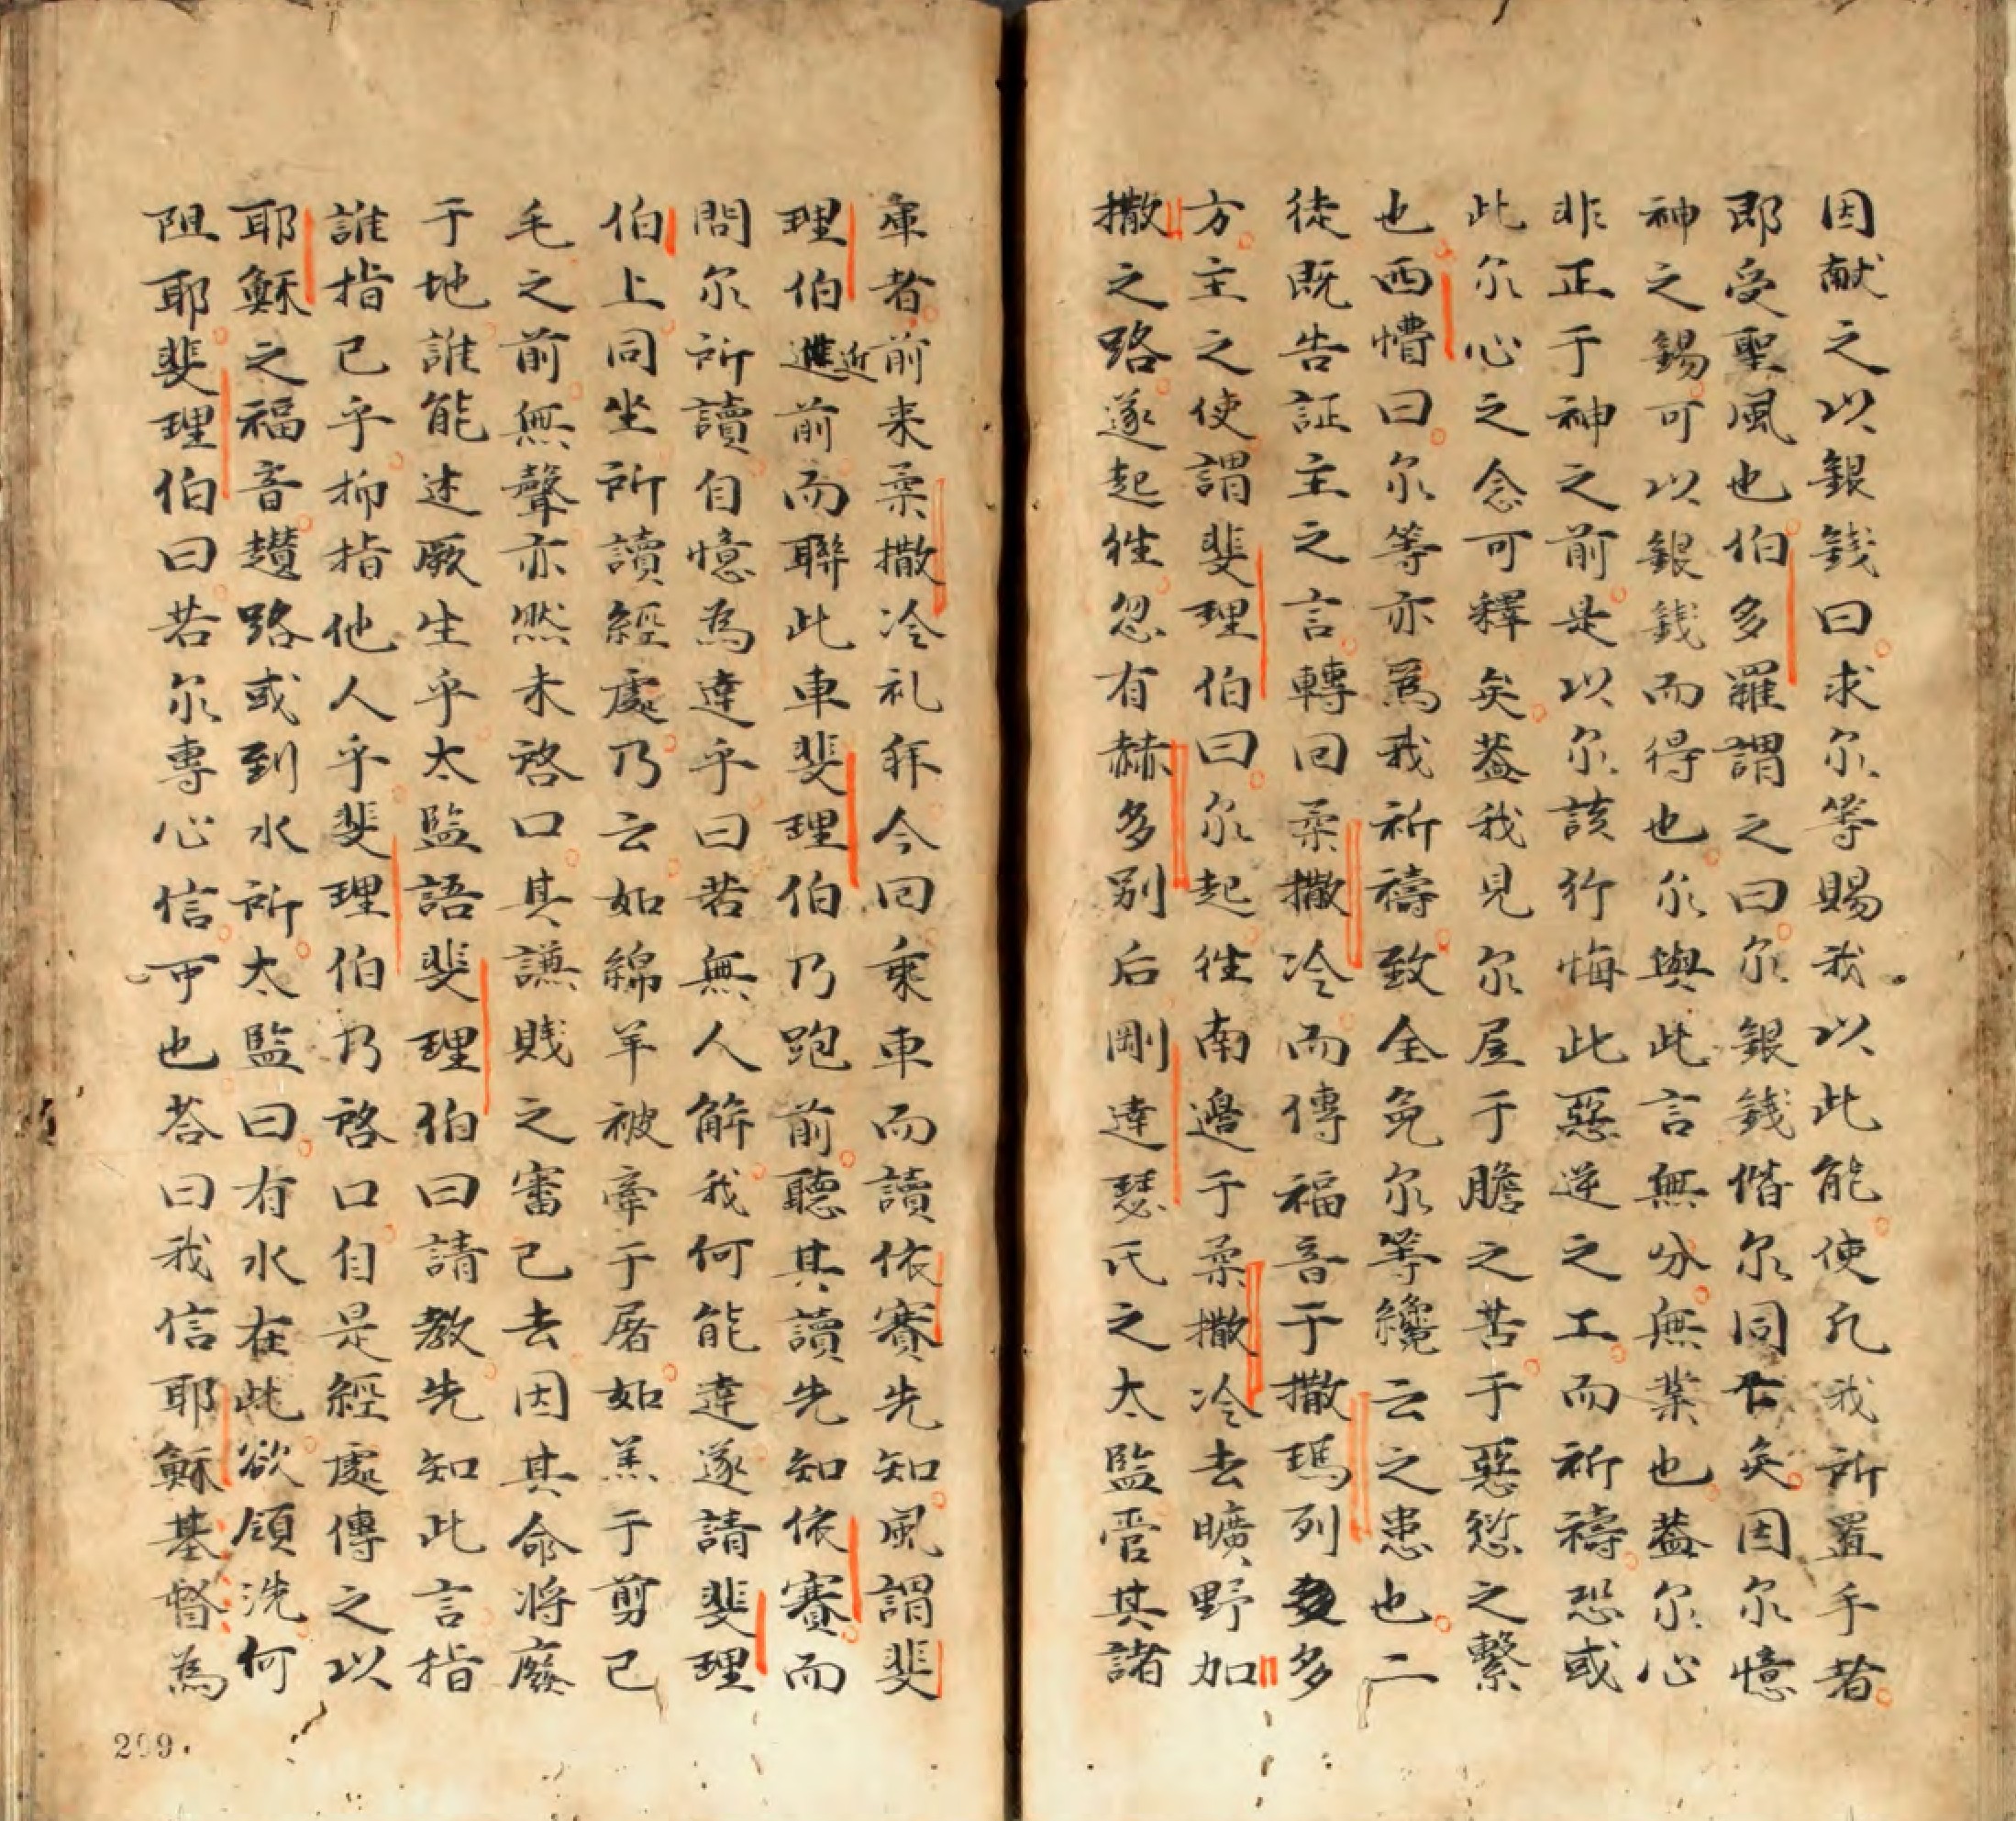 因献之以銀錢曰求尔等賜我以此能使凡我所置手者
即受聖風也伯多羅謂之曰尔銀錢偕尔同亡矣因尔憶
神之錫可以銀錢而得也尔與此言無分無業也蓋尔心
非正于神之前是以尔該行悔此惡逆之工而祈禱恐或
此尔心之念可釋矣蓋我見尔屋于膽之苦于惡愆之繫
也西慒曰尔等亦爲我祈禱致全免尔等纔云之患也二
徒既告証主之言轉回柔撒冷而傳福音于撒瑪列多
方主之使謂斐理伯曰尔起徃南邉于柔撒冷去曠野加
撒之路遂起徃忽有赫多别后剛達瑟氏之太監管其諸
庫者前来柔撒冷礼拜今回乘車而讀依賽先知風謂斐
理伯進近前而聯此車斐理伯乃跑前聽其讀先知依賽而
問尔所讀自憶為達乎曰若無人解我何能達遂請斐理
伯上同坐所讀經處乃云如綿羊被牽于屠如羔于剪己
毛之前無聲亦然未啓口其謙賤之審己去因其命将廢
于地誰能述厥生乎太監語斐理伯曰請教先知此言指
誰指己乎抑指他人乎斐理伯乃啓口自是經處傳之以
耶穌之福音趲路或到水所太監曰有水在此欲領洗何
阻耶斐理伯曰若尔專心信可也荅曰我信耶穌基督為
209.